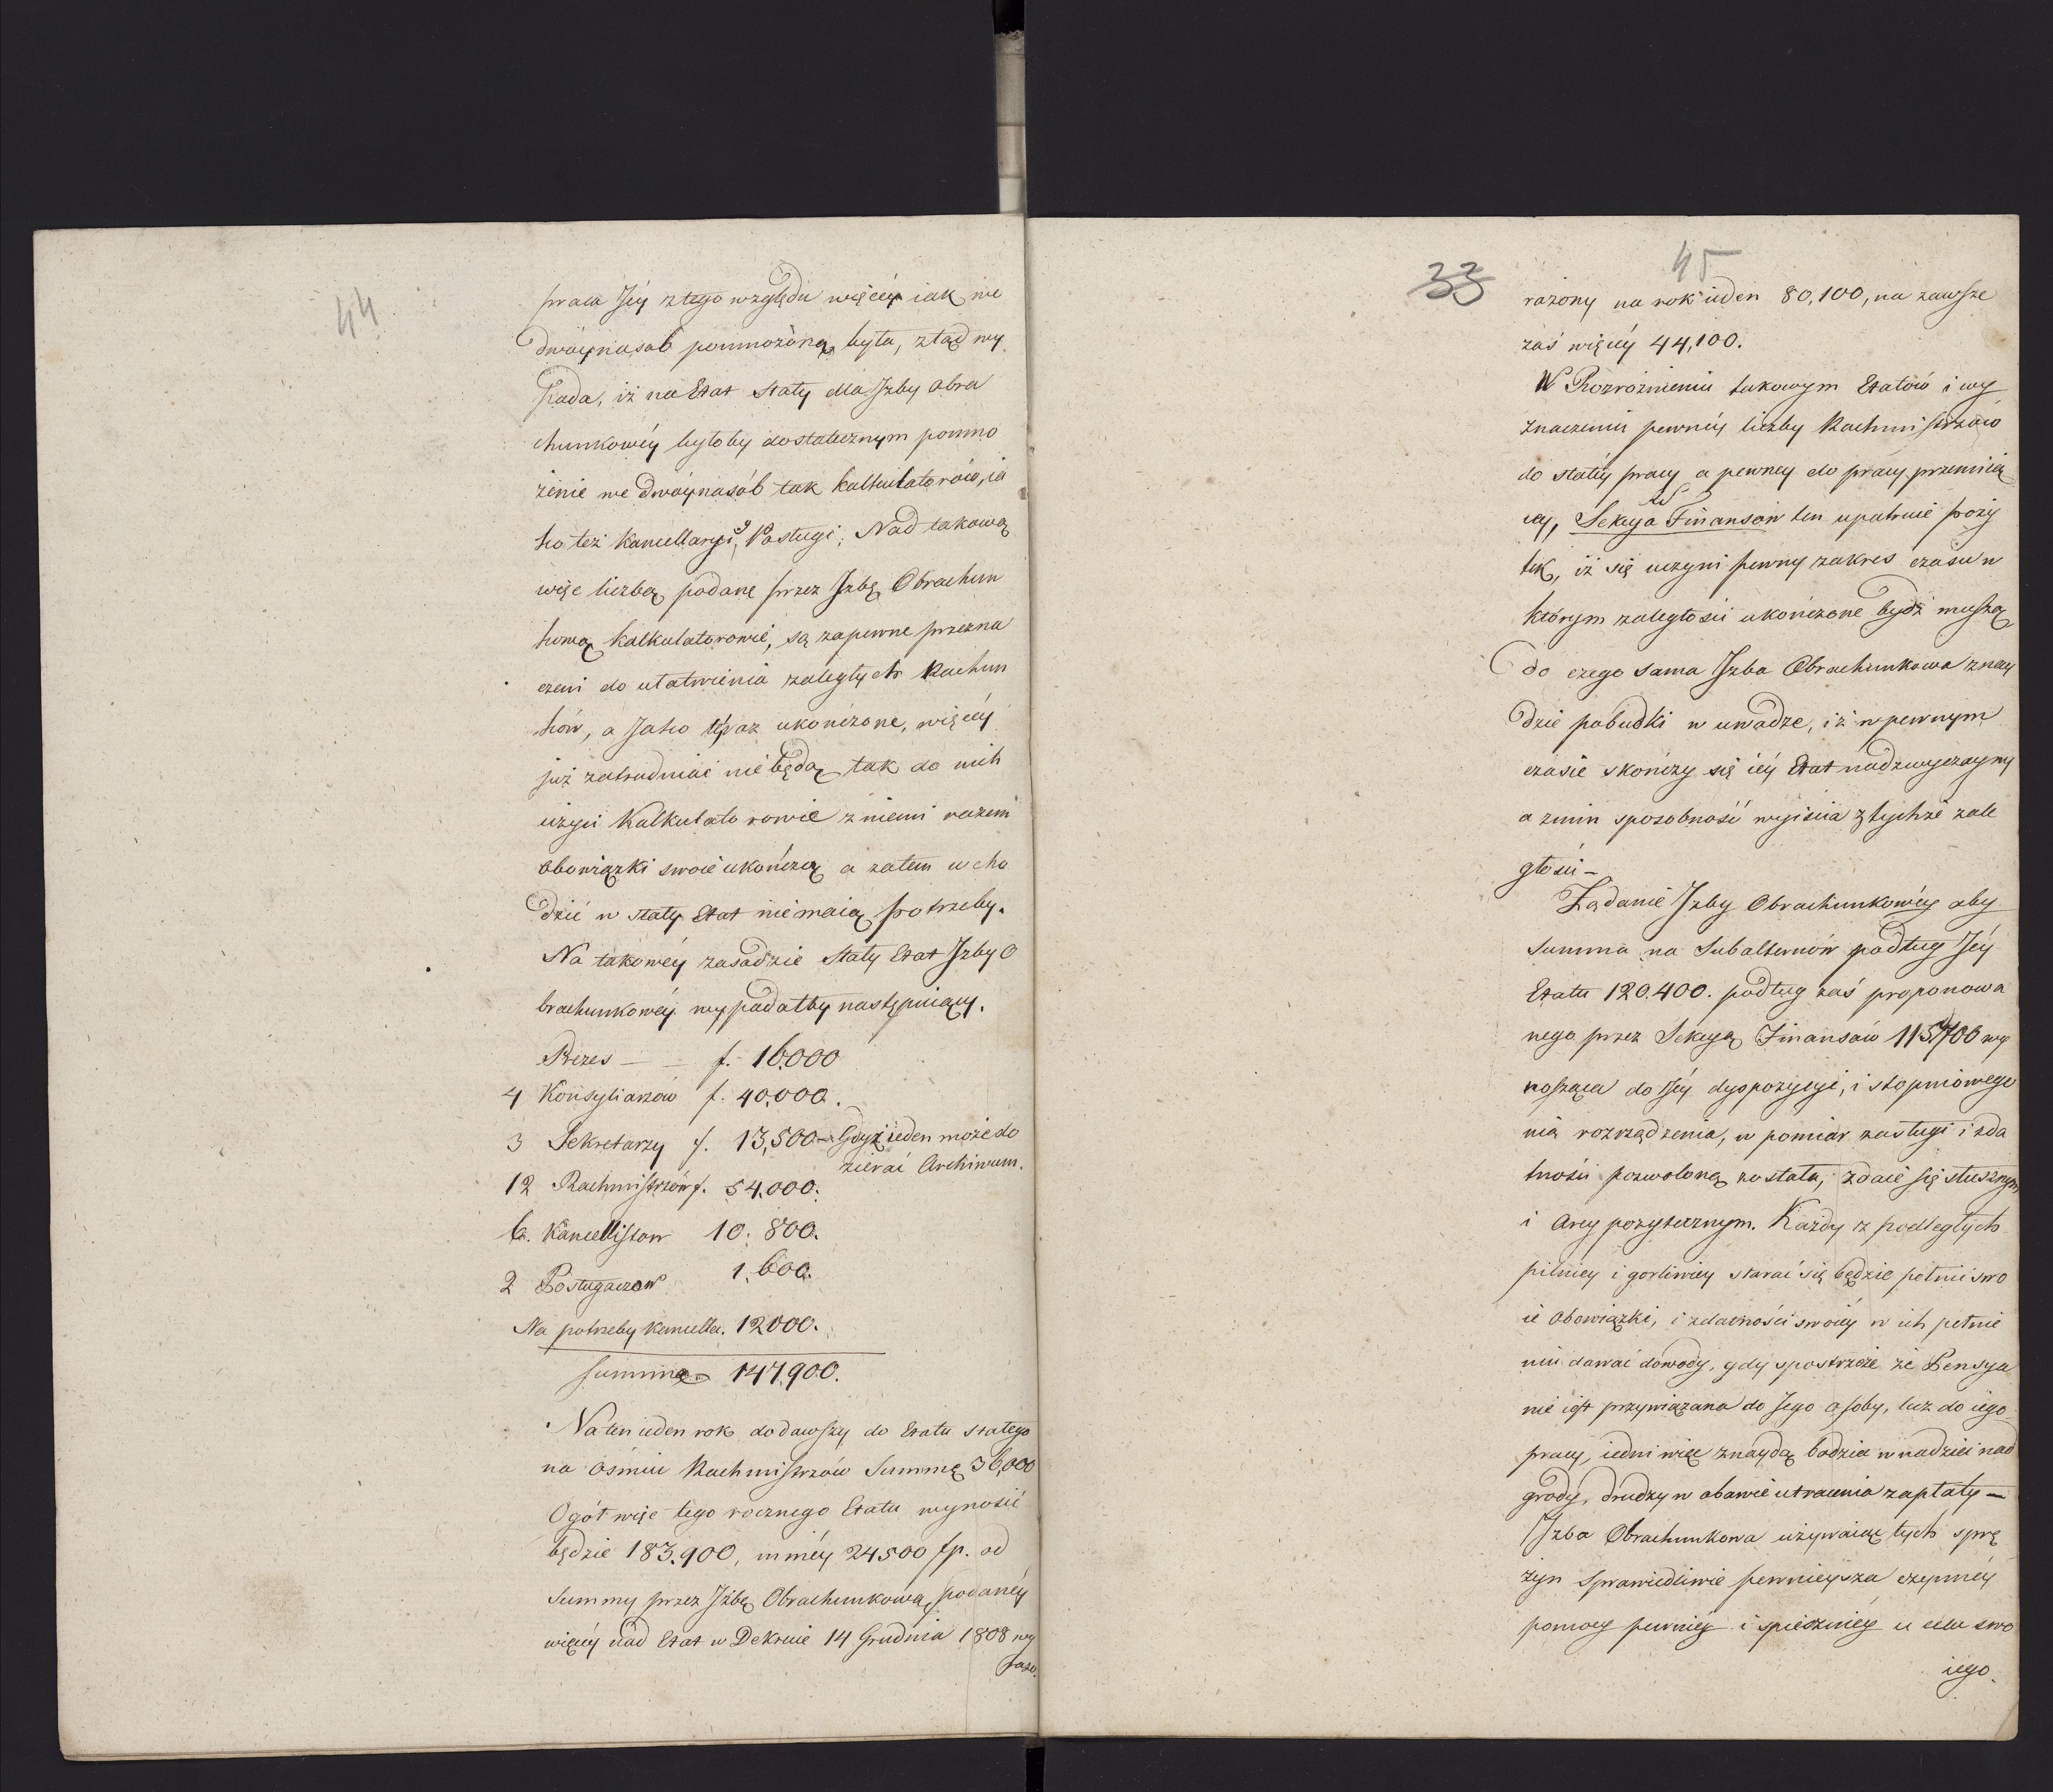 44
praca Jéy z tego względu więcéy iak we
dwóynasob pomnożoną była, ztąd wy
pada, iż na Etat stały dla Jzby obra
chunkowéy byłoby dostatecznym pomno
żenie we dwóynasób tak kalkulatorów, ia
ko też Kancellaryi, y Posługi; Nad takową
więc liczbą podane przez Jzbę Obrachun
kową Kalkulatorowie, są zapewne przezna
czeni do ułatwienia zaległych Rachun
ków, a Jako raz ukończone, więcéy
już zatrudniać nie będą tak do nich
użyci Kalkulatorowie z niemi razem
obowiązki swoie ukończą a zatem wcho
dzić w stały Etat nie maią potrzeby.
Na takowéy zasadzie Stały Etat Jzby O
brachunkowéy wypadałby następuiący.
Prezes — — f. 16000
4 Konsyliarzów f. 40,000.
3 Sekretarzy f. 13,500 — Gdyż ieden może do
zierać Archiwum.
12 Rachmistrzów f. 54,000.
6. Kancellistow 10.800.
2 Posługaczow 1,600.
Na potrzeby Kancella. 12000.
Summa 147.900.
Na ten ieden rok dodawszy do Etatu stałego
na ośmiu Rachmistrzów Summę 36,000
Ogół więc tego rocznego Etatu wynosić
będzie 183.900, mniéy 24500 fp. od
Summy przez Jzbę Obrachunkową podanéy
więcéy nad Etat w Dekrecie 14 Grudnia 1808 wy
razo.
33
45
rażony na rok ieden 80,100, na zawsze
zaś więcéy 44,100.
W Rozróżnieniu takowym Etatów i wy
znaczeniu pewnéy liczby Rachmistrzów
do stałéy pracy a pewney do pracy przemiia
cey, Sekcya Finansow ten upatruie pozy
tek, iż się uczyni pewny zakres czasu w
którym zaległości ukończone bydź muszą
do czego sama Jzba Obrachunkowa znay
dzie pobudki w uwadze, iż w pewnym
czasie skończy się iéy Etat nadzwyczayny
a z nim sposobność wyiścia z tychże zale
głości —
Żądanie Jzby Obrachunkowéy aby
Summa na Subalternów podług Jéy
Etatu 120.400. podług zaś proponowa
nego przez Sekcyą Finansów 115,700 wy
nosząca do Jéy dyspozycyi, i stopniowego
nią rozrządzenia, w pomiar zasługi i zda
tności pozwoloną została, zdaie się słusznym
i arcy pożytecznym. Każdy z podległych
pilniey i gorliwiey starać się będzie pełnić swo
ie obowiązki, i zdatności swoiéy w ich pełnie
niu dawać dowody, gdy spostrzeże że Pensya
nie iest przywiązana do Jego osoby, lecz do iego
pracy, iedni więc znaydą bodzca w nadziei nad
grody, drudzy w obawie utracenia zapłaty —
Jzba Obrachunkowa używaiąc tych sprę
żyn sprawiedliwie pewnieysza czynnéy
pomocy pewniéy i spieszniéy u celu swo
iego.